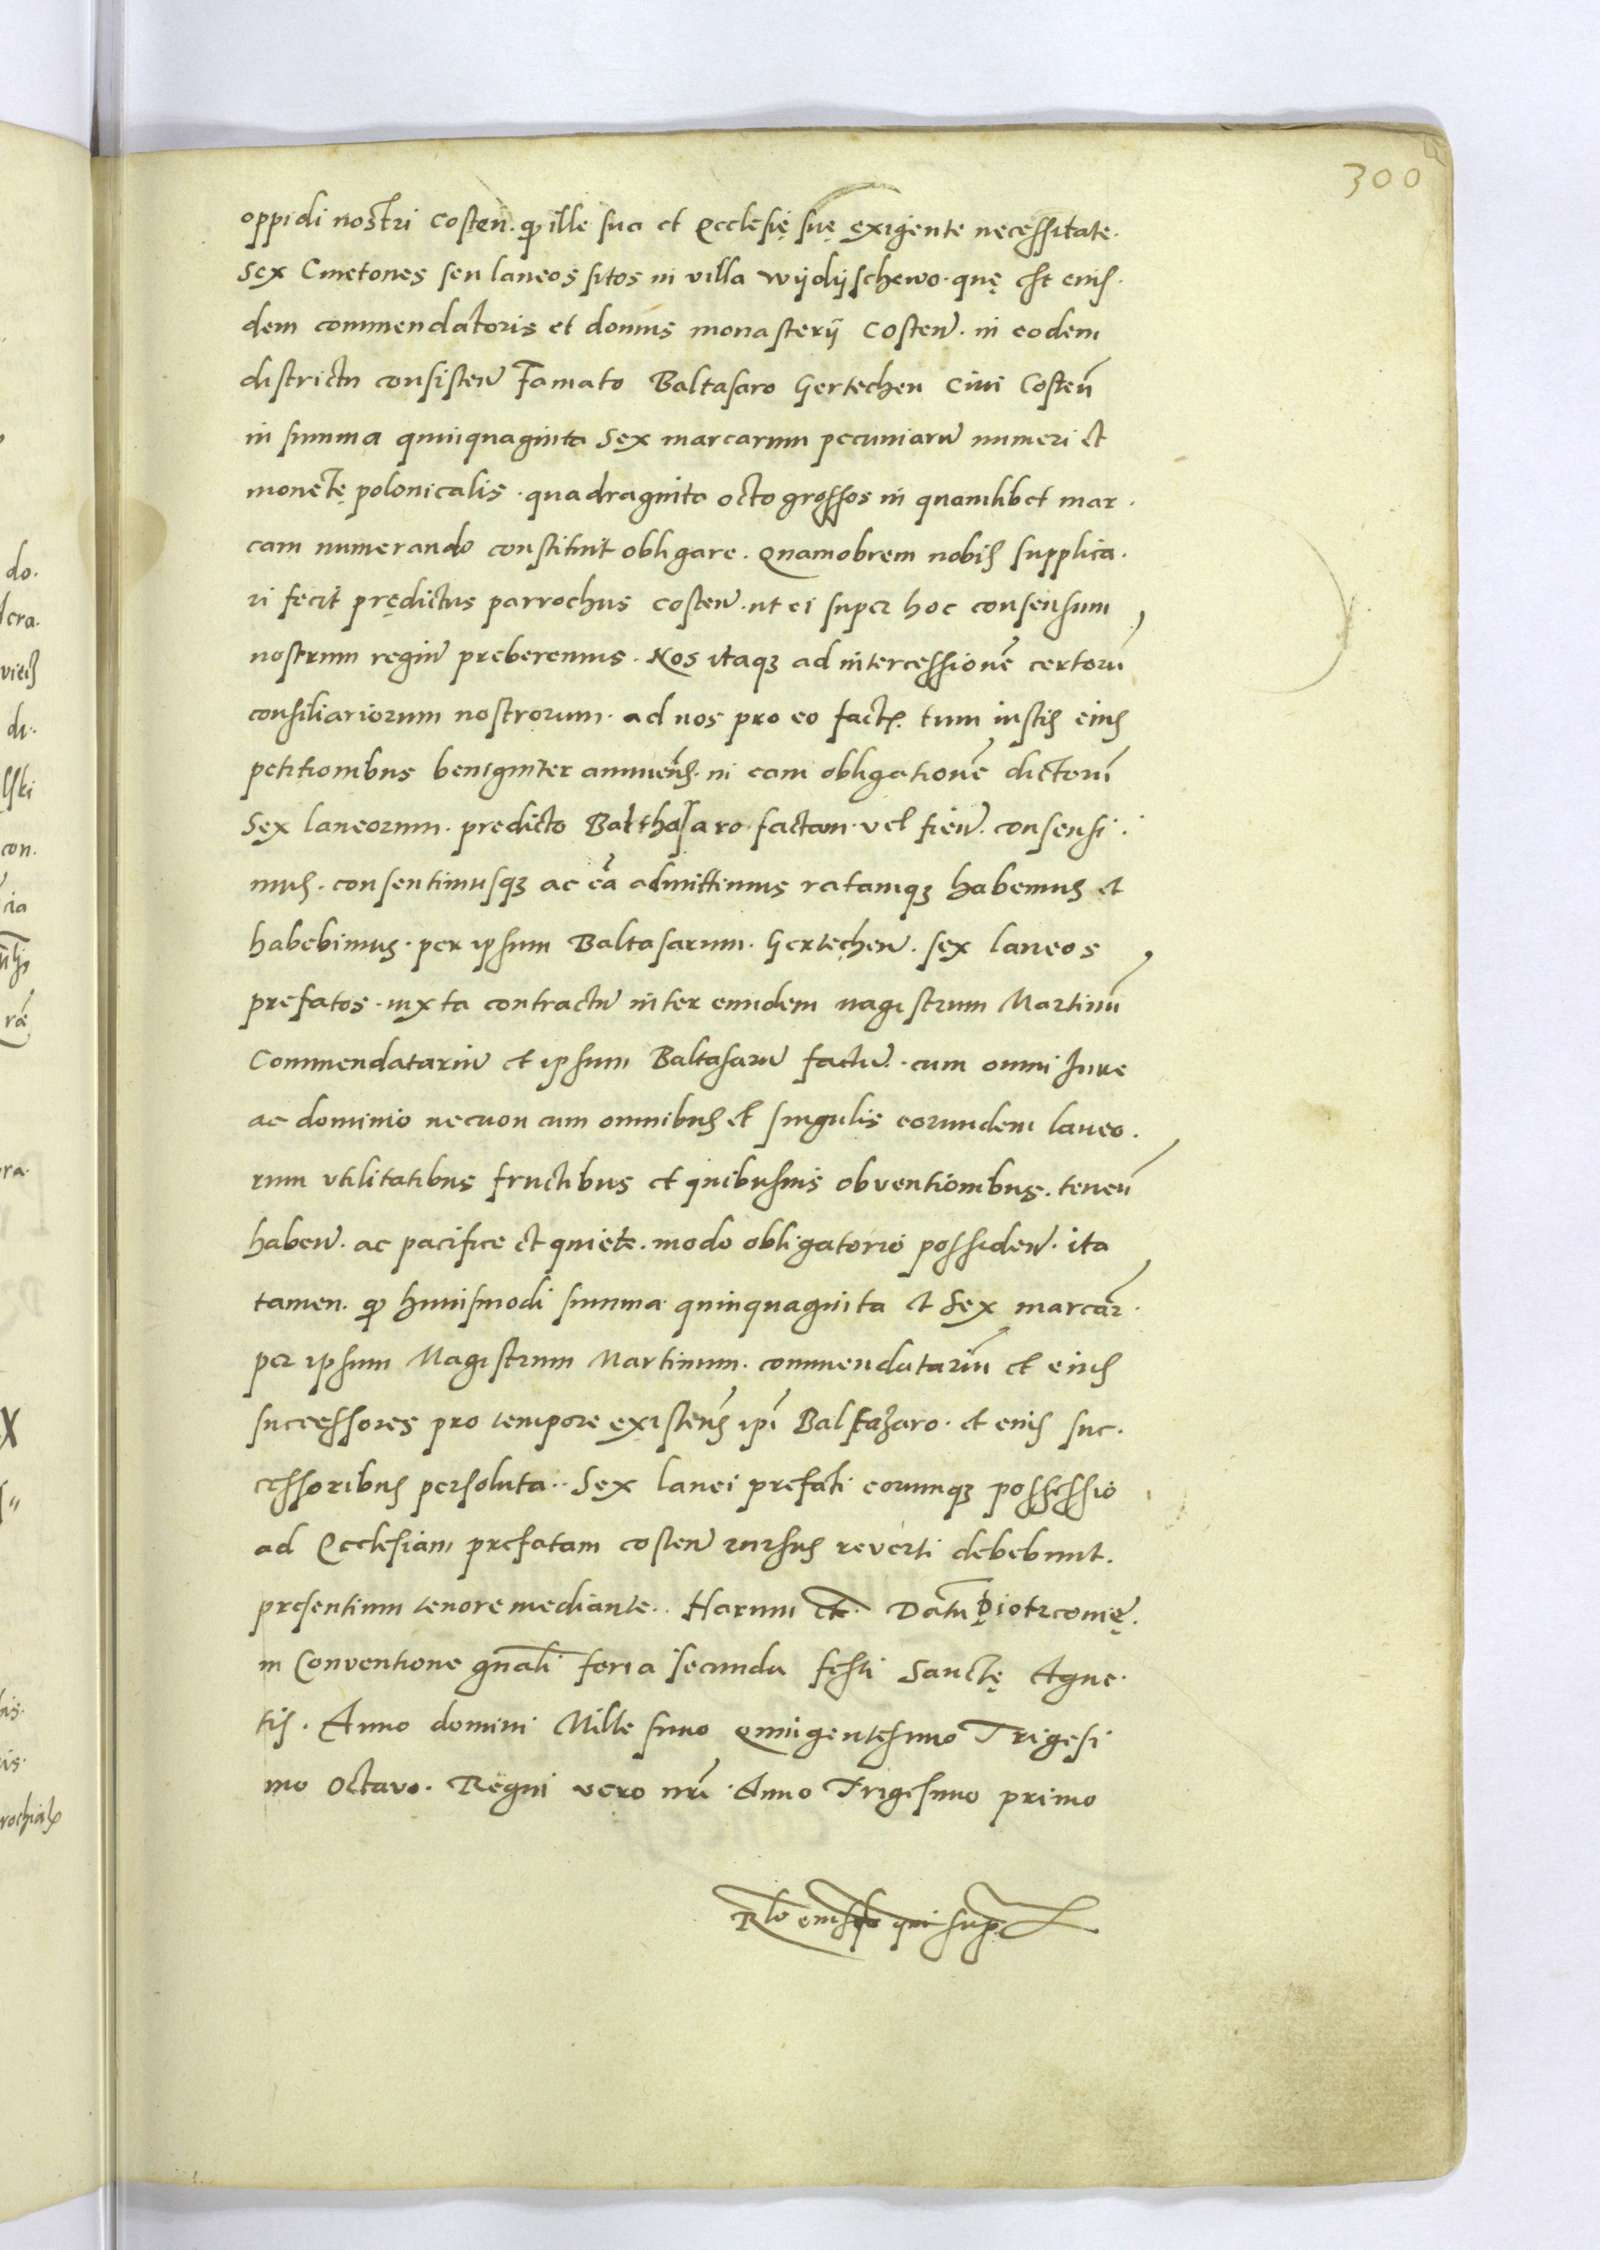 300
oppidi nostri Costeñ. ꝙ ille sua et Ecclesię suę exigente necessitate.
Sex Cmetones seu laneos sitos in villa Wijdijschewo. quę est eius.
dem commendatoris et domus monasterij Costeñ. in eodem
districtu consisteñ Famato Baltasaro Gertechen Civi Costeñ
in summa quinquaginta Sex marcarum pecuniarū numeri et
monetę polonicalis. quadraginta octo grossos in quamlibet mar.
cam numerando constituit obligare. Quamobrem nobis supplica.
ri fecit prędictus parrochus Costeñ. ut ei super hoc consensum
nostrum regiū preberemus. Nos itaqꝫ ad intercessionē certorū
consiliariorum nostrorum. ad nos pro eo fact. tum iustis eius
petitionibus benigniter annueñ. in eam obligationē dictorū
Sex laneorum. predicto Balthasaro. factam. vel fieñ. consensi.
mus. consentimusqꝫ ac eā admittimus ratamqꝫ habemus et
habebimus. per ipsum Baltasarum. Gerteche͂n. sex laneos
prefatos. iuxta contractū inter eundem magistrum Martinū
Commendatariū et ipsum Baltasarū factū. cum omni Jure
ac dominio necnon cum omnibus et singulis eorundem laneo.
rum utilitatibus fructibus et quibusuis obventionibus. teneñ
habeñ. ac pacifice et quiete. modo obligatorio possideñ. ita
tamen. ꝙ huiusmodi summa quinquaginta et Sex marcar̃.
per ipsum Magistrum Martinum. commendatariū et eius
successores pro tempore existeñ ipi Baltazaro. et eius suc.
cessoribus persoluta.. Sex lanei prefati eorumqꝫ possessio
ad Ecclesiam prefatam costeñ rursus reverti debebunt.
presentium tenore mediante.. Harum etc. Datū Piotrcovię.
in Conventione gnāli feria secunda festi Sanctę Agne.
tis. Anno domini Millesimo Quingentesimo Trigesi
mo Octavo. Regni vero nrī. Anno Trigesimo primo
Rlo eiusde qui sup.